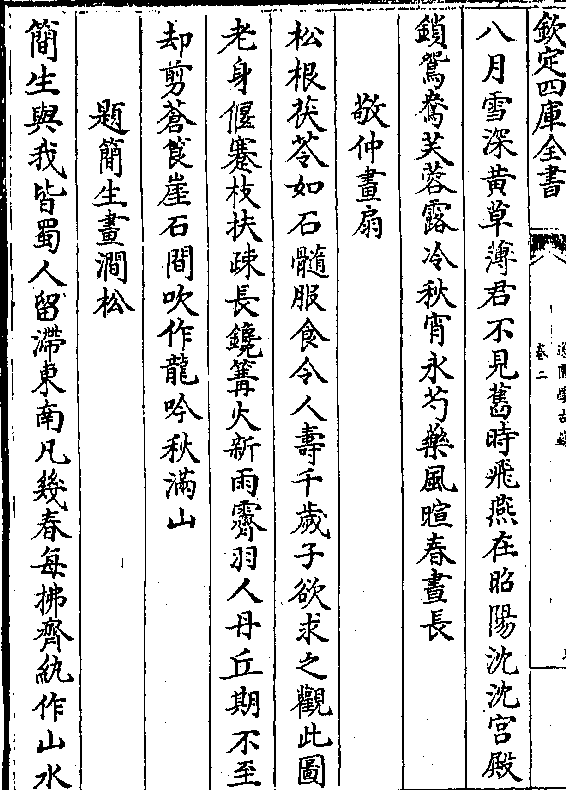 欽定四庫全書
卷二
八月雪深黄草薄君不見舊時飛燕在昭陽沈沈宮殿
鎖鴛鴦芙蓉露冷秋宵永芍藥風暄春晝長
敬仲畫扇
松根茯苓如石髓服食令人壽千歲子欲求之觀此圖
老身偃蹇枝扶疎長鑱篝火新雨霽羽人丹丘期不至
却剪蒼筤崖石間吹作龍吟秋滿山
題簡生畫澗松
簡生與我皆蜀人留滯東南凡幾春每拂齊紈作山水